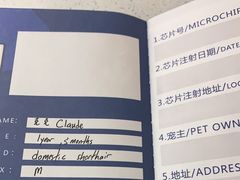 AME: 克克 Claude
E : 1year, 5months
D : domestic shorthair
X : M
1.芯片号/MICROCHIP
2.芯片注射日期/DATE
3.芯片注射地址/LOC
4.宠主/PET OWN
5.地址/ADDRESS